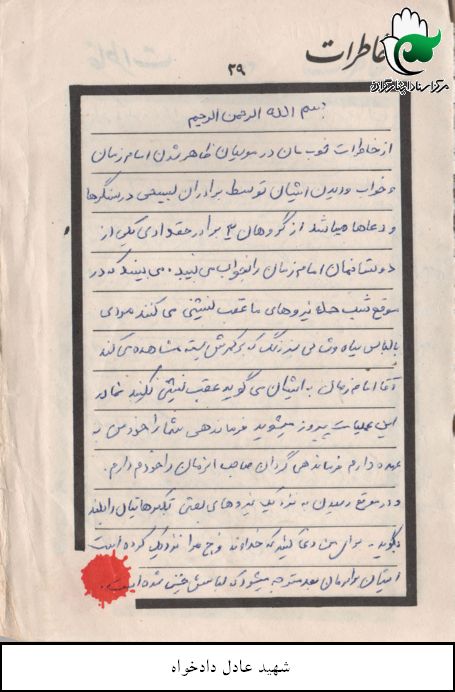 خاطرات
مرکز اسناد ایثارگران
۲۹
بسم الله الرحمن الرحیم
از خاطرات خوب مان در مریوان ظاهر شدن امام زمان
و خواب و دیدن ایشان توسط برادران بسیجی در سنگرها
و دعاها میباشد از گروهان ۳ برادر حقدادی یکی از
دوستانمان امام زمان را بخواب می بیند. می بیند که در
موقع شب حمله نیروهای ما عقب نشینی می کنند مردی
با لباس سیاه و شالی سبز رنگ که بر کمرش بسته مشاهده می کند
آقا امام زمان به ایشان می گوید عقب نشینی نکنید شما در
این عملیات پیروز میشوید فرماندهی شما را خود من به
عهده دارم فرماندهی گردان صاحب الزمان را خودم دارم.
و در موقع رسیدن به نزدیک نیروهای بعثی تکبیرهایتان را بلند
بگوئید. برای من دعا کنید که خداوند فرج مرا نزدیک کرده است
ایشان برادرمان بعد متوجه میشود که لباسش خیس شده است.
شهید عادل دادخواه